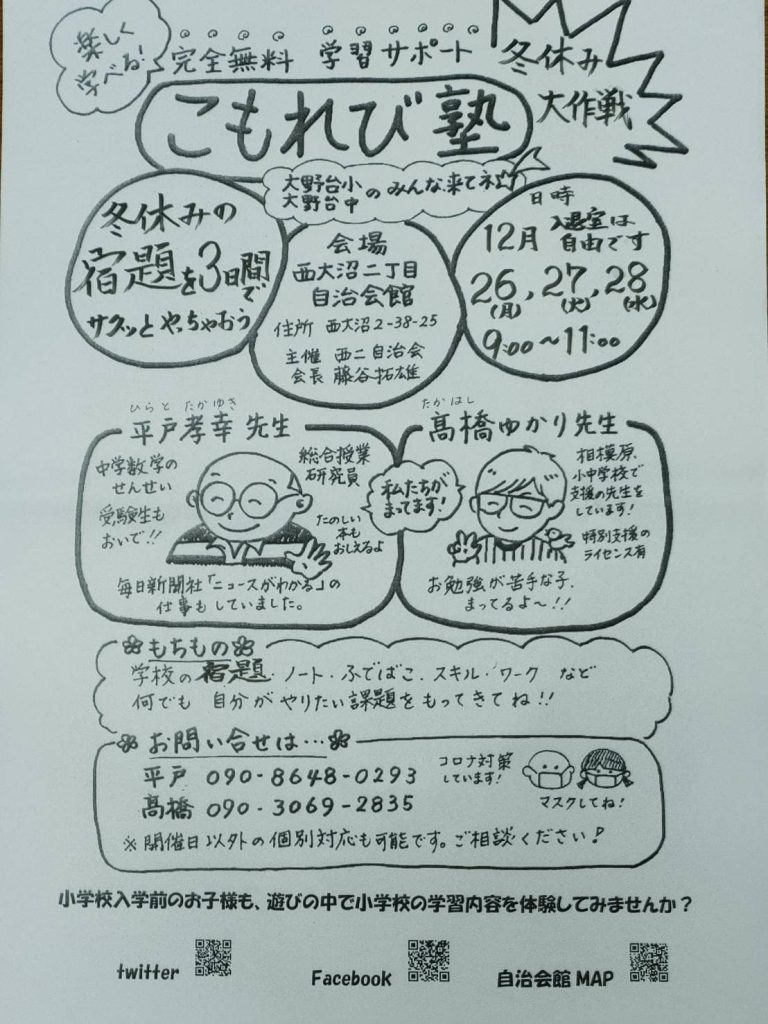 楽しく
学べる!
完全無料 学習サポート
冬休み
大作戦
こもれび塾
大野台小
大野台中
の みんな来てネ
冬休みの
宿題を3日間で
サクッとやっちゃおう
会場
西大沼二丁目
自治会館
住所 西大沼2-38-25
主催 西二自治会
会長 藤谷拓雄
日時
12月 入退室は
自由です
26, 27, 28
(月) (火) (水)
9:00~11:00
ひらと たかゆき
平戸孝幸 先生
中学数学の
せんせい
受験生も
おいで!!
総合授業
研究員
たのしい
本も
おしえるよ
毎日新聞社「ニュースがわかる」の
仕事もしていました。
私たちが
まってます!
たかはし
髙橋ゆかり先生
相模原、
小中学校で
支援の先生を
しています!
特別支援の
ライセンス有
お勉強が苦手な子、
まってるよ~!!
もちもの
学校の宿題・ノート・ふでばこ、スキル・ワーク など
何でも 自分がやりたい課題をもってきてね!!
お問い合せは…
平戸 090-8648-0293
髙橋 090-3069-2835
コロナ対策
しています!
マスクしてね!
※開催日以外の個別対応も可能です。ご相談ください!
小学校入学前のお子様も、遊びの中で小学校の学習内容を体験してみませんか?
twitter
Facebook
自治会館 MAP